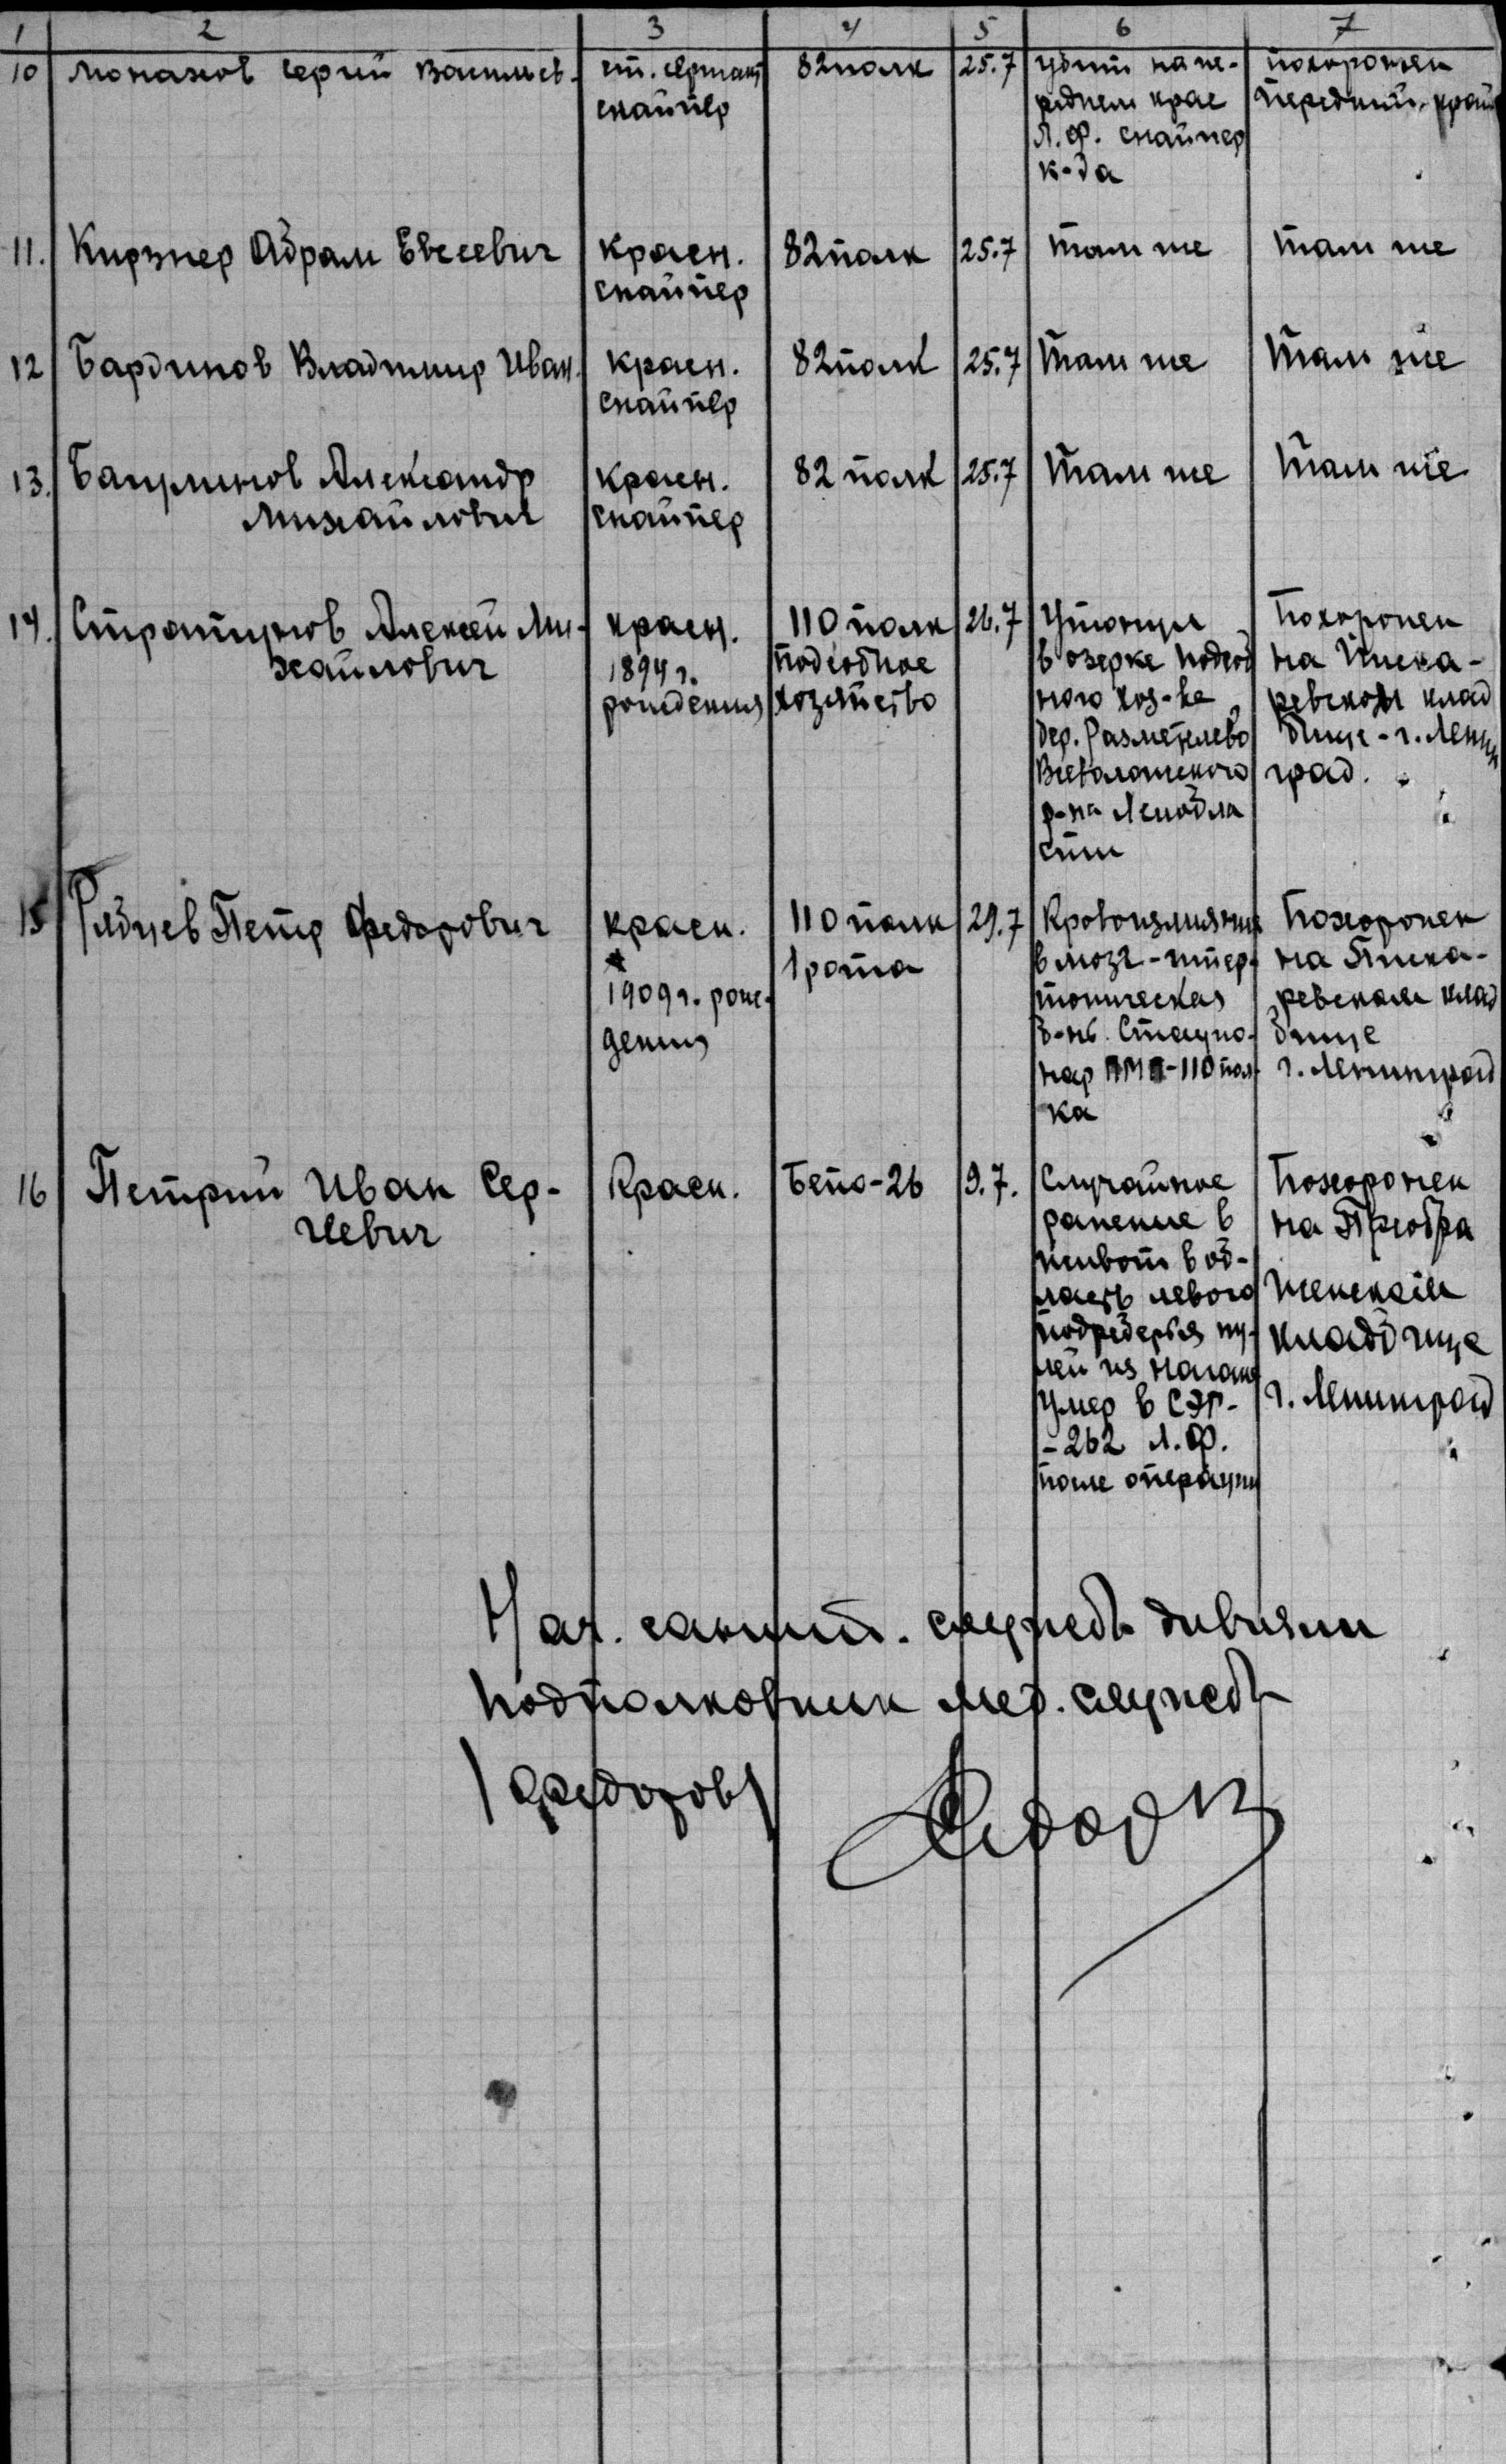 1 2 3 4 5 6 7
10 Монахов Сергий Васильев. ст. сержант снайпер 82 полк 25.7 убит на пе-
реднем крае
Л.Ф. снайпер
к-да похоронен
передний край
11. Кирзнер Абрам Евсеевич красн.
снайпер 82 полк 25.7 там же там же
12 Бардинов Владимир Иван. красн.
снайпер 82 полк 25.7 Там же Там же
13. Александр
Михайлович красн.
снайпер 82 полк 25.7 Там же Там же
14. Алексей Ми-
хайлович красн.
1894 г.
рождения 110 полк
подсобное
хозяйство 26.7 Утонул
в озерке подсоб
ного хоз-ва
дер. Разметелево
Всеволожского
р-на Ленобла
сти Похоронен
на Писка-
ревском клад
бище - г. Ленин
град.
15 Рябцев Петр Федорович красн.
1909 г. рож-
дения 110 полк
1 рота 29.7 Кровоизлияние
в мозг - гипер-
тоническая
б-нь. Стацио-
нар ПМП-110 пол-
ка Похоронен
на Писка-
ревском клад
бище
г. Ленинград
16 Петрий Иван Сер-
геевич Красн. Бепо-26 9.7. Случайное
ранение в
живот в об-
ласть левого
подреберья пу-
лей из нагана
Умер в СЭГ-
-262 Л.Ф.
после операции Похоронен
на Преобра
женском
кладбище
г. Ленинград
Нач. санит. службы дивизии
Подполковник мед. службы
/Федоров/ Федоров